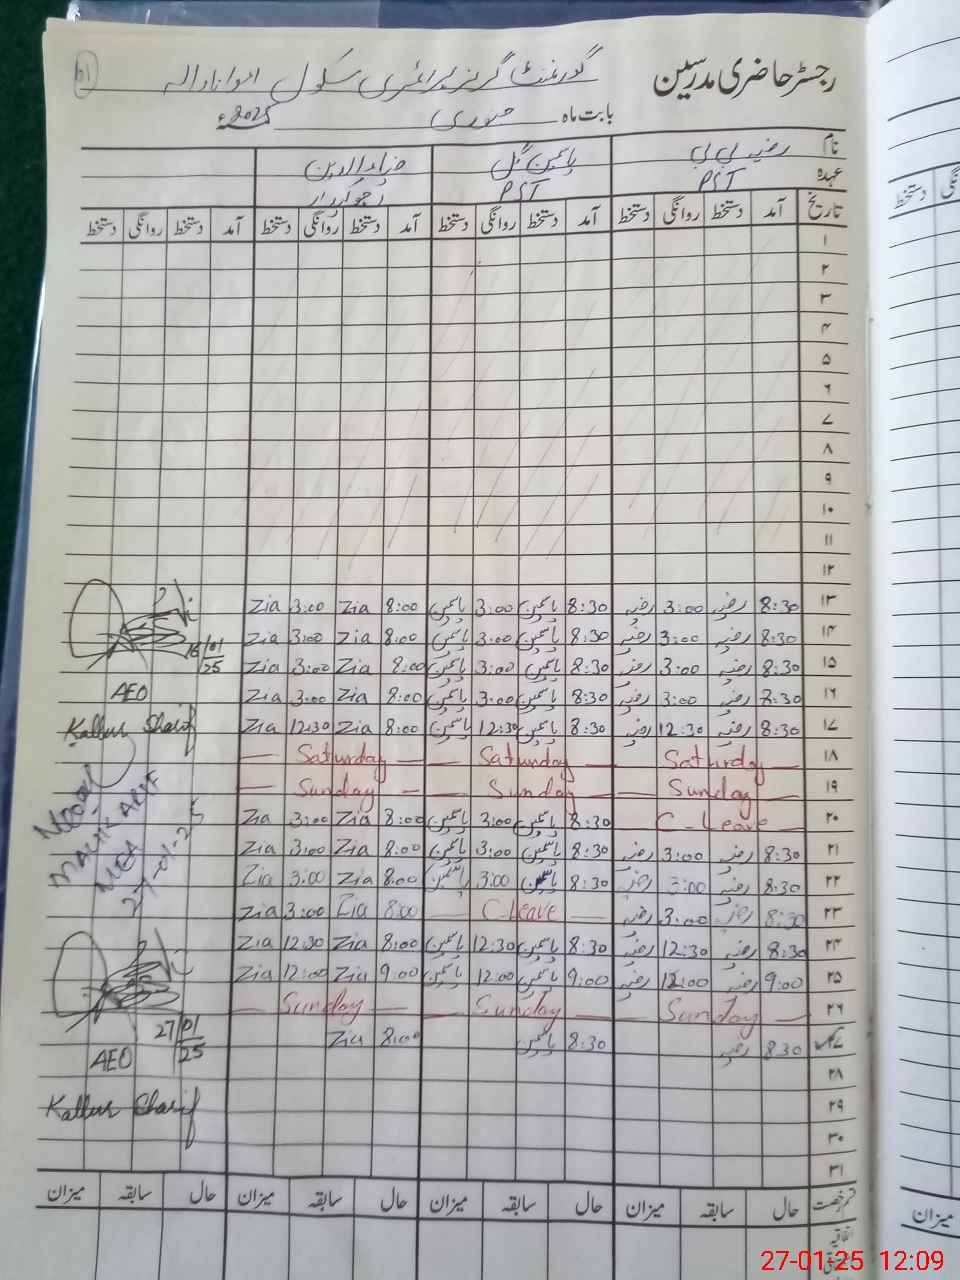 رجسٹر حاضری مدرسین گورنمنٹ گرلز پرائمری سکول
بابت ماہ جنوری 2025ء
نام رضیہ بی بی یاسمین گل ضیاء الدین
عہدہ PST PST چوکیدار
تاریخ آمد دستخط روانگی دستخط آمد دستخط روانگی دستخط آمد دستخط روانگی دستخط آمد دستخط روانگی دستخط
۱
۲
۳
۴
۵
۶
۷
۸
۹
۱۰
۱۱
۱۲
۱۳ 8:30 رضیہ 3:00 رضیہ 8:30 یاسمین 3:00 یاسمین 8:00 Zia 3:00 Zia
۱۴ 8:30 رضیہ 3:00 رضیہ 8:30 یاسمین 3:00 یاسمین 8:00 Zia 3:00 Zia
۱۵ 8:30 رضیہ 3:00 رضیہ 8:30 یاسمین 3:00 یاسمین 8:00 Zia 3:00 Zia 16/01/25
۱۶ 8:30 رضیہ 3:00 رضیہ 8:30 یاسمین 3:00 یاسمین 8:00 Zia 3:00 Zia AEO
۱۷ 8:30 رضیہ 12:30 رضیہ 8:30 یاسمین 12:30 یاسمین 8:00 Zia 12:30 Zia Kallur Sharif
۱۸ Saturday Saturday Saturday
۱۹ Sunday Sunday Sunday
۲۰ C-Leave 8:30 یاسمین 3:00 یاسمین 8:00 Zia 3:00 Zia
۲۱ 8:30 رضیہ 3:00 رضیہ 8:30 یاسمین 3:00 یاسمین 8:00 Zia 3:00 Zia MALIK ARIF
۲۲ 8:30 رضیہ 3:00 رضیہ 8:30 یاسمین 3:00 یاسمین 8:00 Zia 3:00 Zia MEA
۲۳ 8:30 رضیہ 3:00 رضیہ C-Leave 8:00 Zia 3:00 Zia 27-01-25
۲۴ 8:30 رضیہ 12:30 رضیہ 8:30 یاسمین 12:30 یاسمین 8:00 Zia 12:30 Zia
۲۵ 9:00 رضیہ 12:00 رضیہ 9:00 یاسمین 12:00 یاسمین 9:00 Zia 12:00 Zia
۲۶ Sunday Sunday Sunday
۲۷ 8:30 رضیہ 8:30 یاسمین 8:00 Zia 27/01/25
۲۸ AEO
۲۹ Kallur Sharif
۳۰
۳۱
قسم رخصت حال سابقہ میزان حال سابقہ میزان حال سابقہ میزان حال سابقہ میزان
اتفاقیہ
دستخط
میزان
27-01-25 12:09